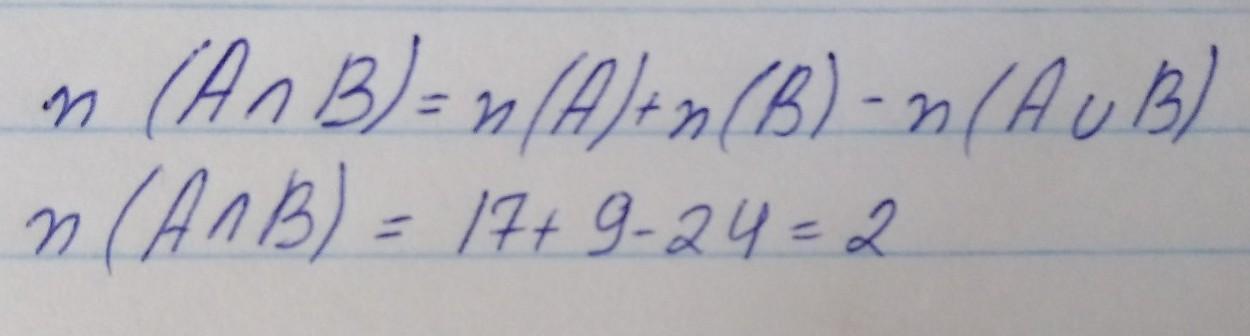 n (A∩B)=n(A)+n(B)-n(A∪B)
n(A∩B) = 17+ 9-24=2